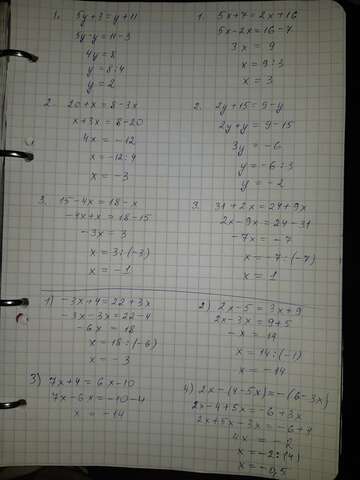 1. 5y+3=y+11
5y-y=11-3
4y=8
y=8:4
y=2
1. 5x+7=2x+16
5x-2x=16-7
3x=9
x=9:3
x=3
2. 20+x=8-3x
x+3x=8-20
4x=-12
x=-12:4
x=-3
2. 2y+15=9-y
2y+y=9-15
3y=-6
y=-6:3
y=-2
3. 15-4x=18-x
-4x+x=18-15
-3x=3
x=3:(-3)
x=-1
3. 31+2x=24+9x
2x-9x=24-31
-7x=-7
x=-7:(-7)
x=1
1) -3x+4=22+3x
-3x-3x=22-4
-6x=18
x=18:(-6)
x=-3
2) 2x-5=3x+9
2x-3x=9+5
-x=14
x=14:(-1)
x=-14
3) 7x+4=6x-10
7x-6x=-10-4
x=-14
4) 2x-(4-5x)=-(6-3x)
2x-4+5x=-6+3x
2x+5x-3x=-6+4
4x=-2
x=-2:(4)
x=-0,5